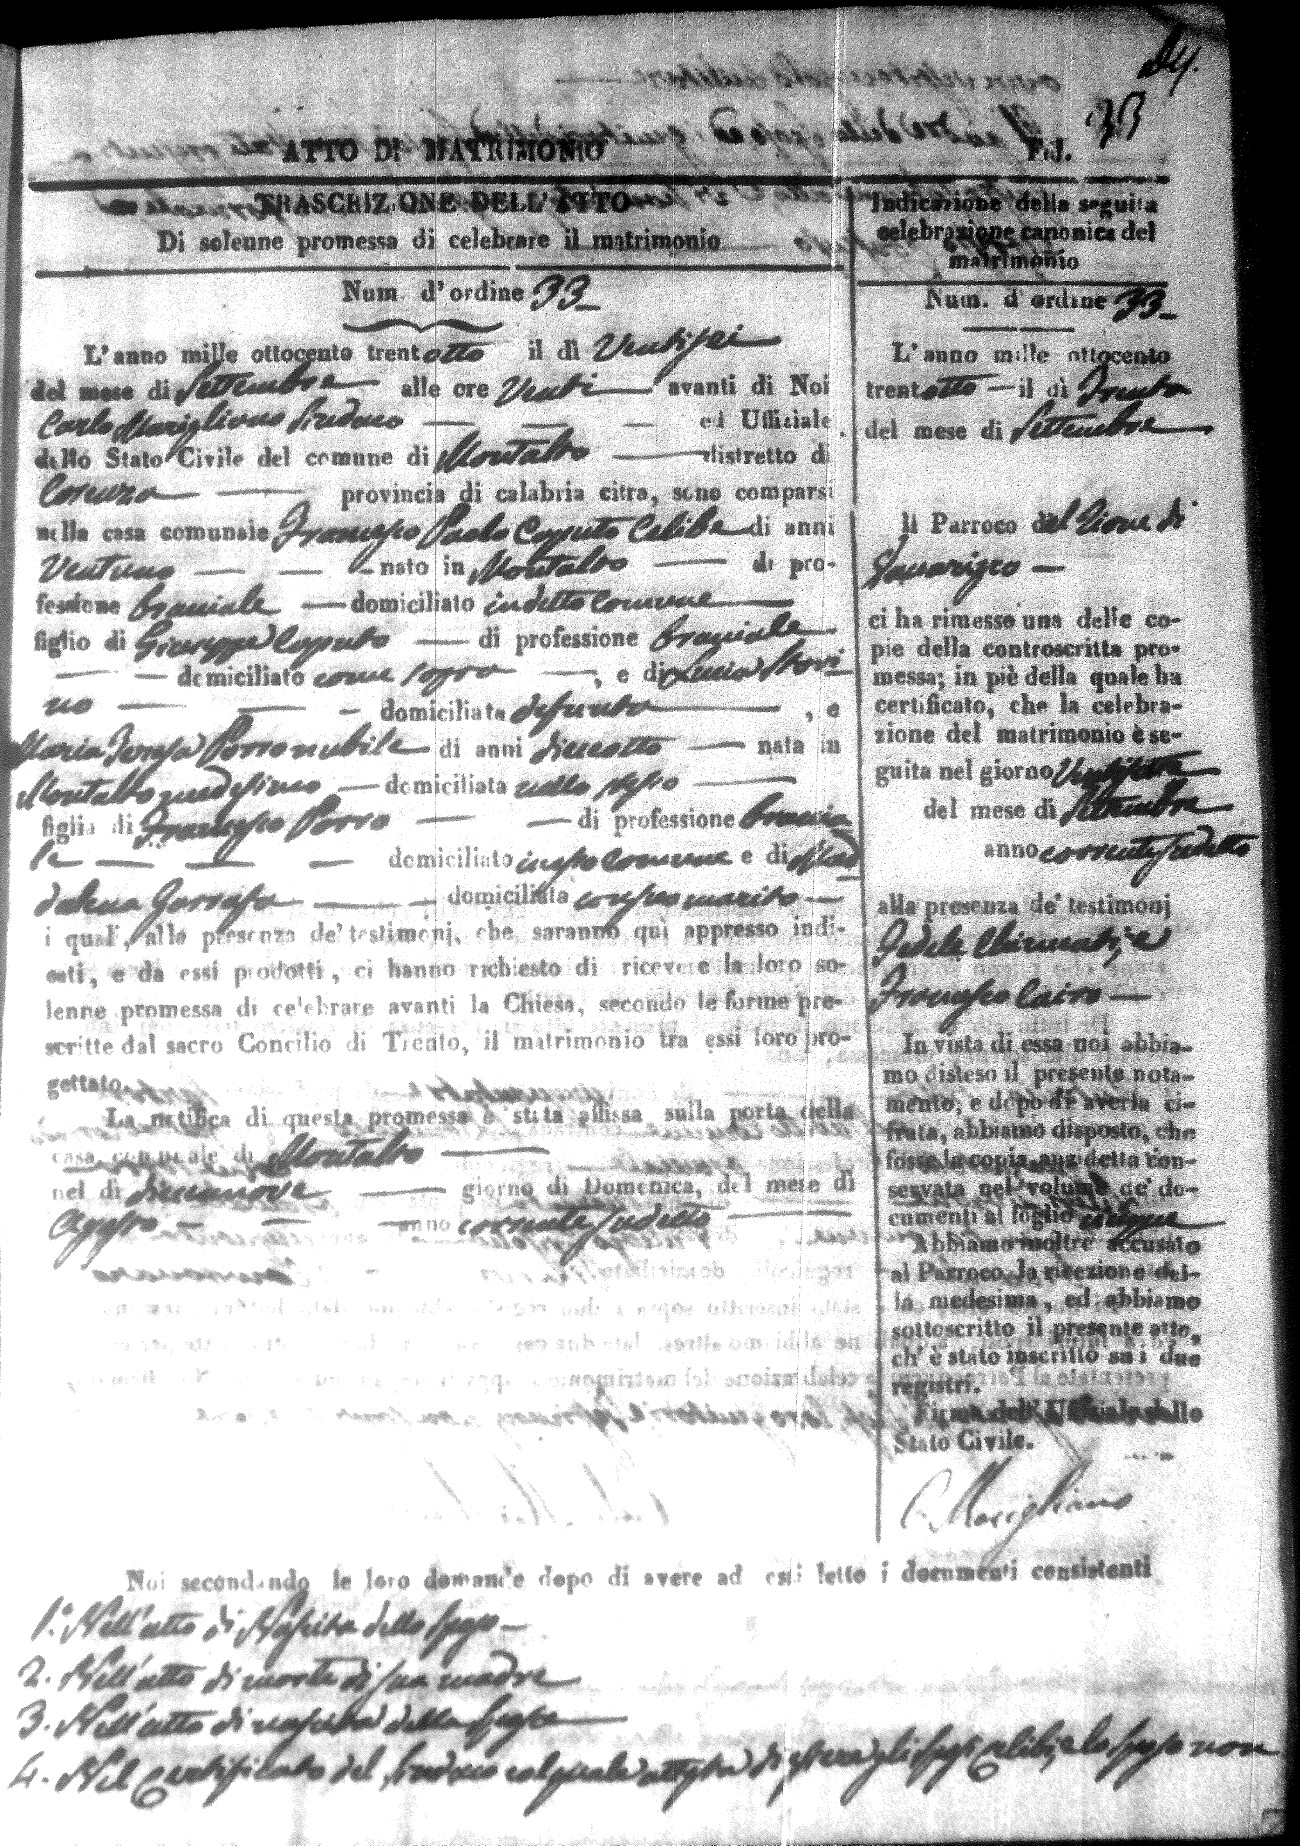 33
ATTO DI MATRIMONIO
Fol.
TRASCRIZIONE DELL'ATTO
Di solenne promessa di celebrare il matrimonio
Num. d'ordine 33
L'anno mille ottocento trentotto il dì Ventisei
del mese di Settembre alle ore Venti avanti di Noi
Carlo Marigliano Sindaco ed Ufficiale
dello Stato Civile del comune di Montalto distretto di
Cosenza provincia di calabria citra, sono comparsi
nella casa comunale Francesco Paolo Caputo Celibe di anni
Ventuno nato in Montalto di pro-
fessione bracciale domiciliato in detto Comune
figlio di Giuseppe Caputo di professione bracciale
domiciliato come sopra , e di Lucia
no domiciliata defunta , e
Maria Teresa Porro nubile di anni dieciotto nata in
Montalto medesimo domiciliata nello stesso
figlia di Francesco Porro di professione braccia
le domiciliato in esso Comune e di Mad
dalena domiciliata con esso marito
i quali, alla presenza de' testimonj, che saranno quì appresso indi-
cati, e da essi prodotti, ci hanno richiesto di ricevere la loro so-
lenne promessa di celebrare avanti la Chiesa, secondo le forme pre-
scritte dal sacro Concilio di Trento, il matrimonio tra essi loro pro-
gettato.
La notifica di questa promessa è stata affissa sulla porta della
casa comunale di Montalto
nel dì diecianove giorno di Domenica, del mese di
Agosto anno corrente sudetto
Indicazione della seguita
celebrazione canonica del
matrimonio
Num. d'ordine 33
L'anno mille ottocento
trentotto il dì Trenta
del mese di Settembre
Il Parroco del Rione di
ci ha rimesso una delle co-
pie della controscritta pro-
messa; in piè della quale ha
certificato, che la celebra-
zione del matrimonio è se-
guita nel giorno Ventisette
del mese di Settembre
anno corrente sudetto
alla presenza de' testimonj
Fedele Chimenti, e
Francesco Cairo
In vista di essa noi abbia-
mo disteso il presente nota-
mento, e dopo di averla ci-
frata, abbiamo disposto, che
fosse la copia anzidetta con-
servata nel volume de' do-
cumenti al foglio cinque
Abbiamo inoltre accusato
al Parroco la ricezione del-
la medesima, ed abbiamo
sottoscritto il presente atto,
ch'è stato inscritto su i due
registri.
Firma dell' Ufficiale dello
Stato Civile.
C. Marigliano
Noi secondando le loro domande dopo di avere ad essi letto i documenti consistenti
1.° Nell'atto di Nascita dello sposo
2. Nell'atto di morte di sua madre
3. Nell'atto di nascita della sposa
4. Nel Certificato del Sindaco col quale attesta di essere gli sposi celibi, e lo sposo non